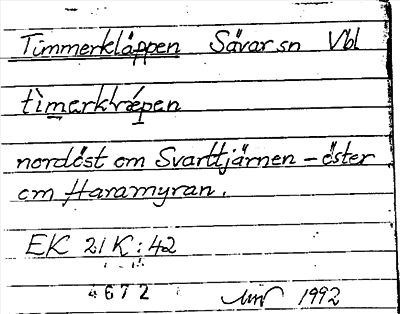 Timmerkläppen Sävar sn Vbl
timerklæpen
nordöst om Svarttjärnen - öster
om Haramyran.
EK 21 K : 42
4672 1992